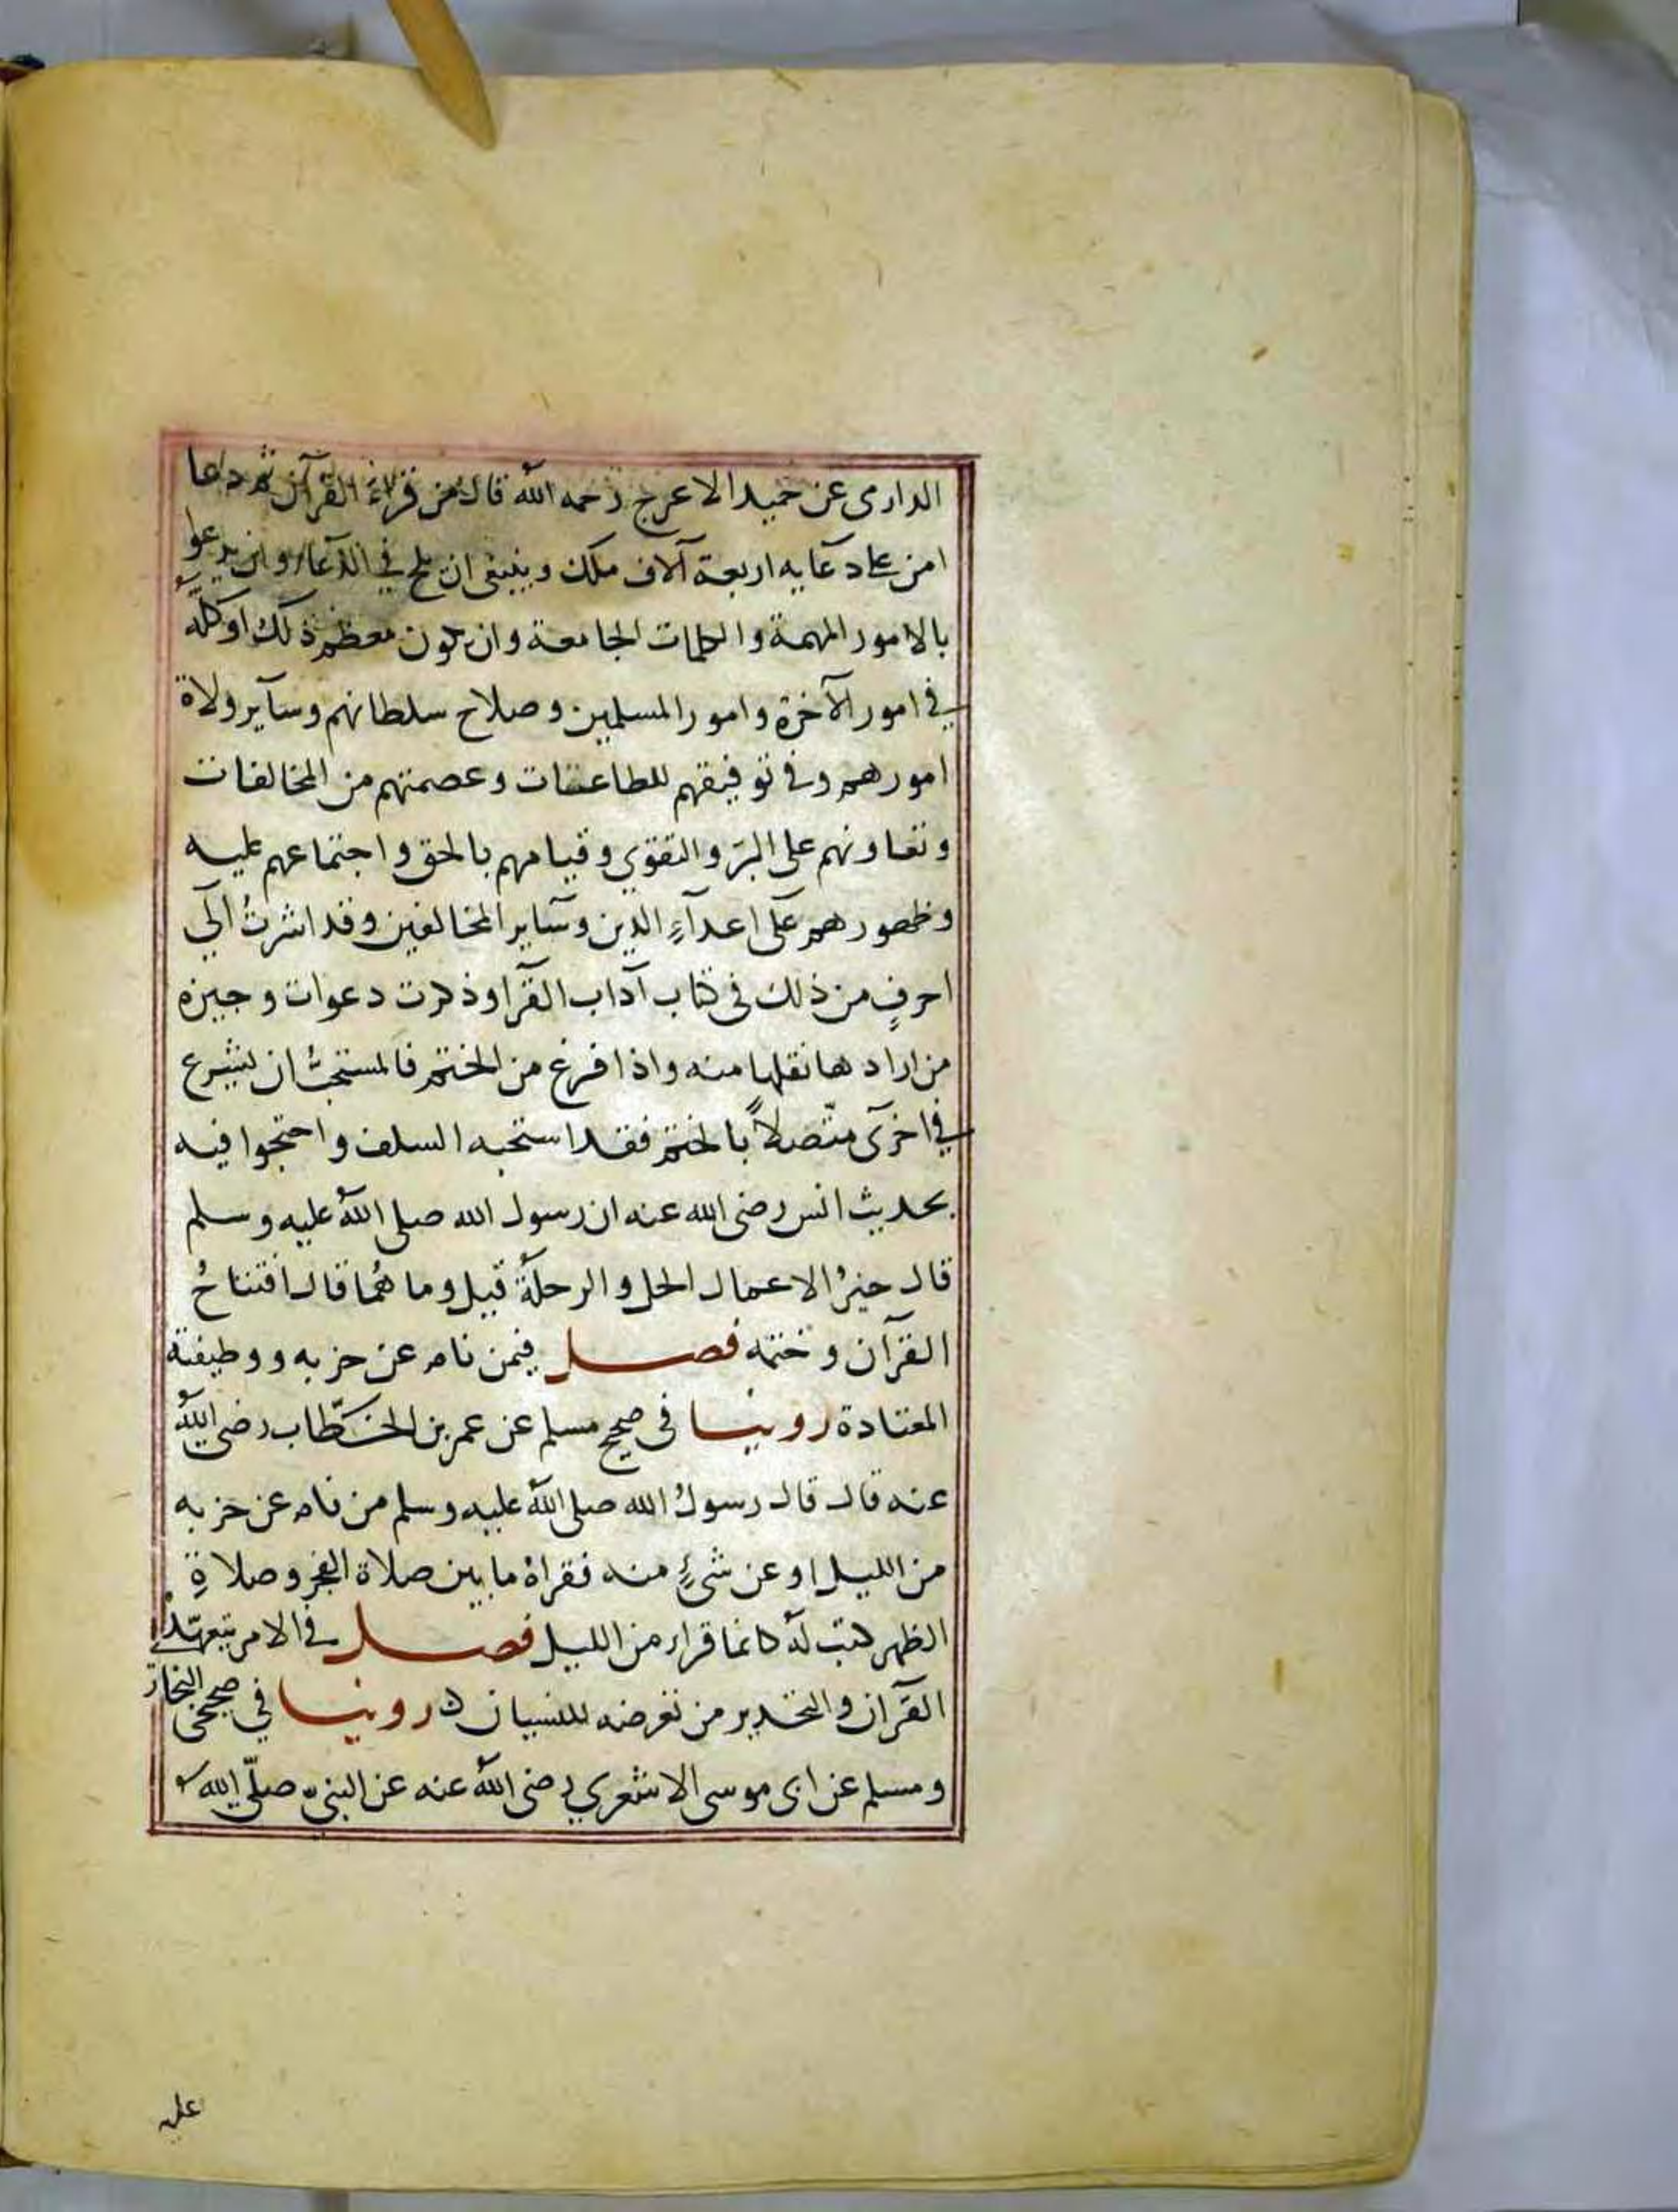 الدارمى عن حميد الاعرج رحمه الله قال من قراء القرآن ثم دعا
امن على دعايه اربعة آلاف ملك وينبغى ان يلح في الدعاء وان يدعو
بالامور المهمة والكلمات الجامعة وان يكون معظم ذلك او كله
في امور الآخرة وامور المسلمين وصلاح سلطانهم وسآير ولاة
امورهم وفي توفيقهم للطاعات وعصمتهم من المخالفات
وتعاونهم على البرّ والتقوي وقيامهم بالحق واجتماعهم عليه
وظهورهم على اعدآءِ الدين وسآير المخالفين وقد اشرتُ الي
احرفٍ من ذلك في كتاب آداب القرآ وذكرت دعوات وجيزه
من ارادها نقلها منه واذا فرغ من الختم فالمستحبُّ ان يشرع
في اخرى متّصلاً بالختم فقد استحبه السلف واحتجوا فيه
بحديث انس رضى الله عنه ان رسول الله صلى اللهُ عليه وسلم
قال خيرُ الاعمال الحل والرحلة قيل وما هُما قال افتتاحُ
القرآن وختمه فصل فيمن نام عن حزبه ووظيفته
المعتادة روينا فى صحيح مسلم عن عمر بن الخطّاب رضى اللهُ
عنه قال قال رسولُ الله صلى اللهُ عليه وسلم من نام عن حزبه
من الليل او عن شئٍ منه فقراهُ ما بين صلاة الفجر وصلاةِ
الظهر كتب لهُ كانما قراه من الليل فصل في الامر بتعهّد
القرآن والتحذير من تعرضه للنسيان روينا في صحيحى البخارى
ومسلم عن ابى موسى الاشعري رضى اللهُ عنه عن النبى صلّى الله
عليه